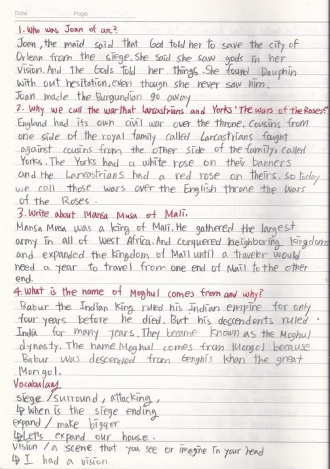 Date Page
1. Who was Joan of arc?
Joan, the maid said that God told her to save the city of
Orlean from the siege. She said she saw gods in her
Vision. And the Gods told her things. She found Dauphin
with out hesitation, even though she never saw him.
Joan made the Burgundion go away
2. Why we call the war that Lancastrians and Yorks "The wars of the Roses?"
England had its own civil war over the throne. Cousins from
one side of the royal family called Larcastrians fought
against cousins from the other side of the family, called
Yorks. The Yorks had a white rose on their banners
and the Larcastrians had a red rose on theirs. So today
we call those wars over the English throne the Wars
of the Roses.
3. Write about Mansa Musa of Mali.
Mansa Musa was a king of Mali. He gathered the largest
army in all of West Africa. And conquered neighboring kingdoms
and expanded the kingdom of Mali until a traveler would
need a year to travel from one end of Mali to the other
end.
4. What is the name of Moghul comes from and why?
Babur the Indian King ruled his Indian empire for only
four years before he died. But his descendents ruled
India for many years. They became known as the Moghul
dynasty. The name Moghul comes from Mongol because
Babur was descended from Genghis Khan the great
Mongol.
Vocabulary
siege / surround, attacking,
↳ When is the siege ending
expand / make bigger
↳ Let's expand our house.
Vision / a scene that you see or imagine in your head
↳ I had a vision